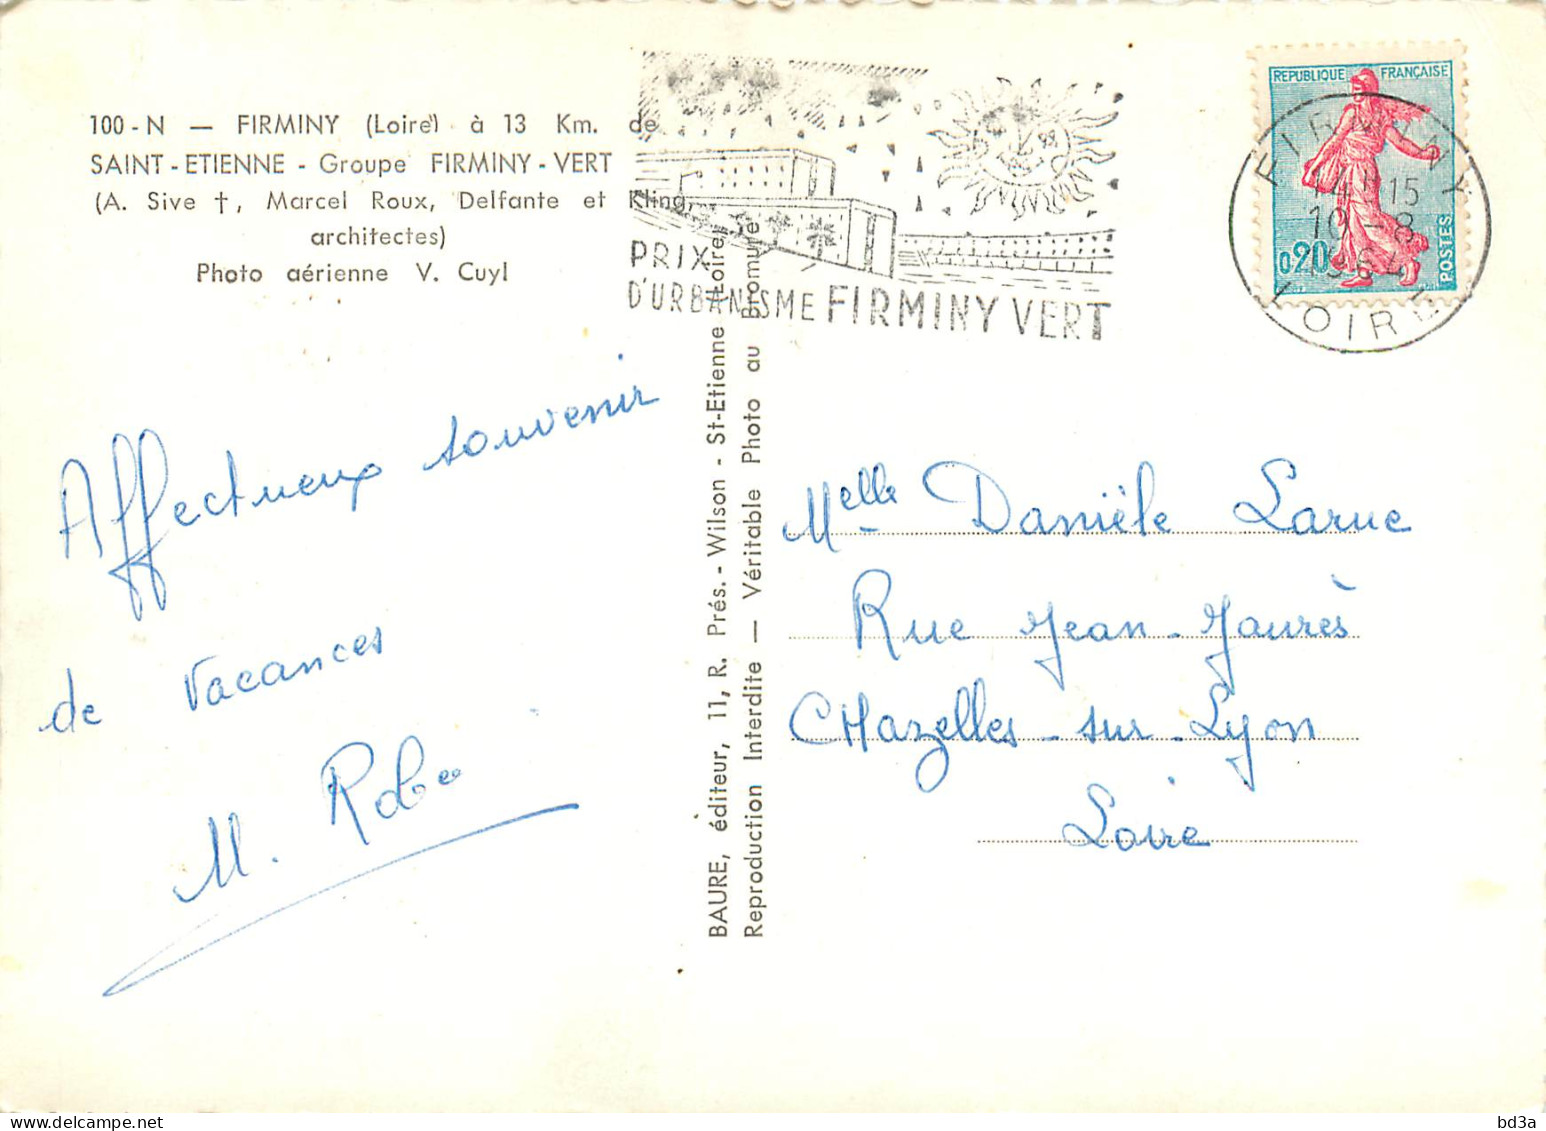 100 - N — FIRMINY (Loire) à 13 Km. de
SAINT - ETIENNE - Groupe FIRMINY - VERT
(A. Sive †, Marcel Roux, Delfante et Kling,
architectes)
Photo aérienne V. Cuyl
PRIX
D'URBANISME FIRMINY VERT
REPUBLIQUE FRANÇAISE
0,20
POSTES
FIRMINY
14H15
10 - 8
1964
LOIRE
Affectueux souvenir
de vacances
M.
BAURE, éditeur, 11, R. Prés. - Wilson - St-Etienne (Loire)
Reproduction Interdite — Véritable Photo au Bromure
Melle Danièle Larue
Rue Jean-Jaurès
CHazelles-sur-Lyon
Loire
bd3a